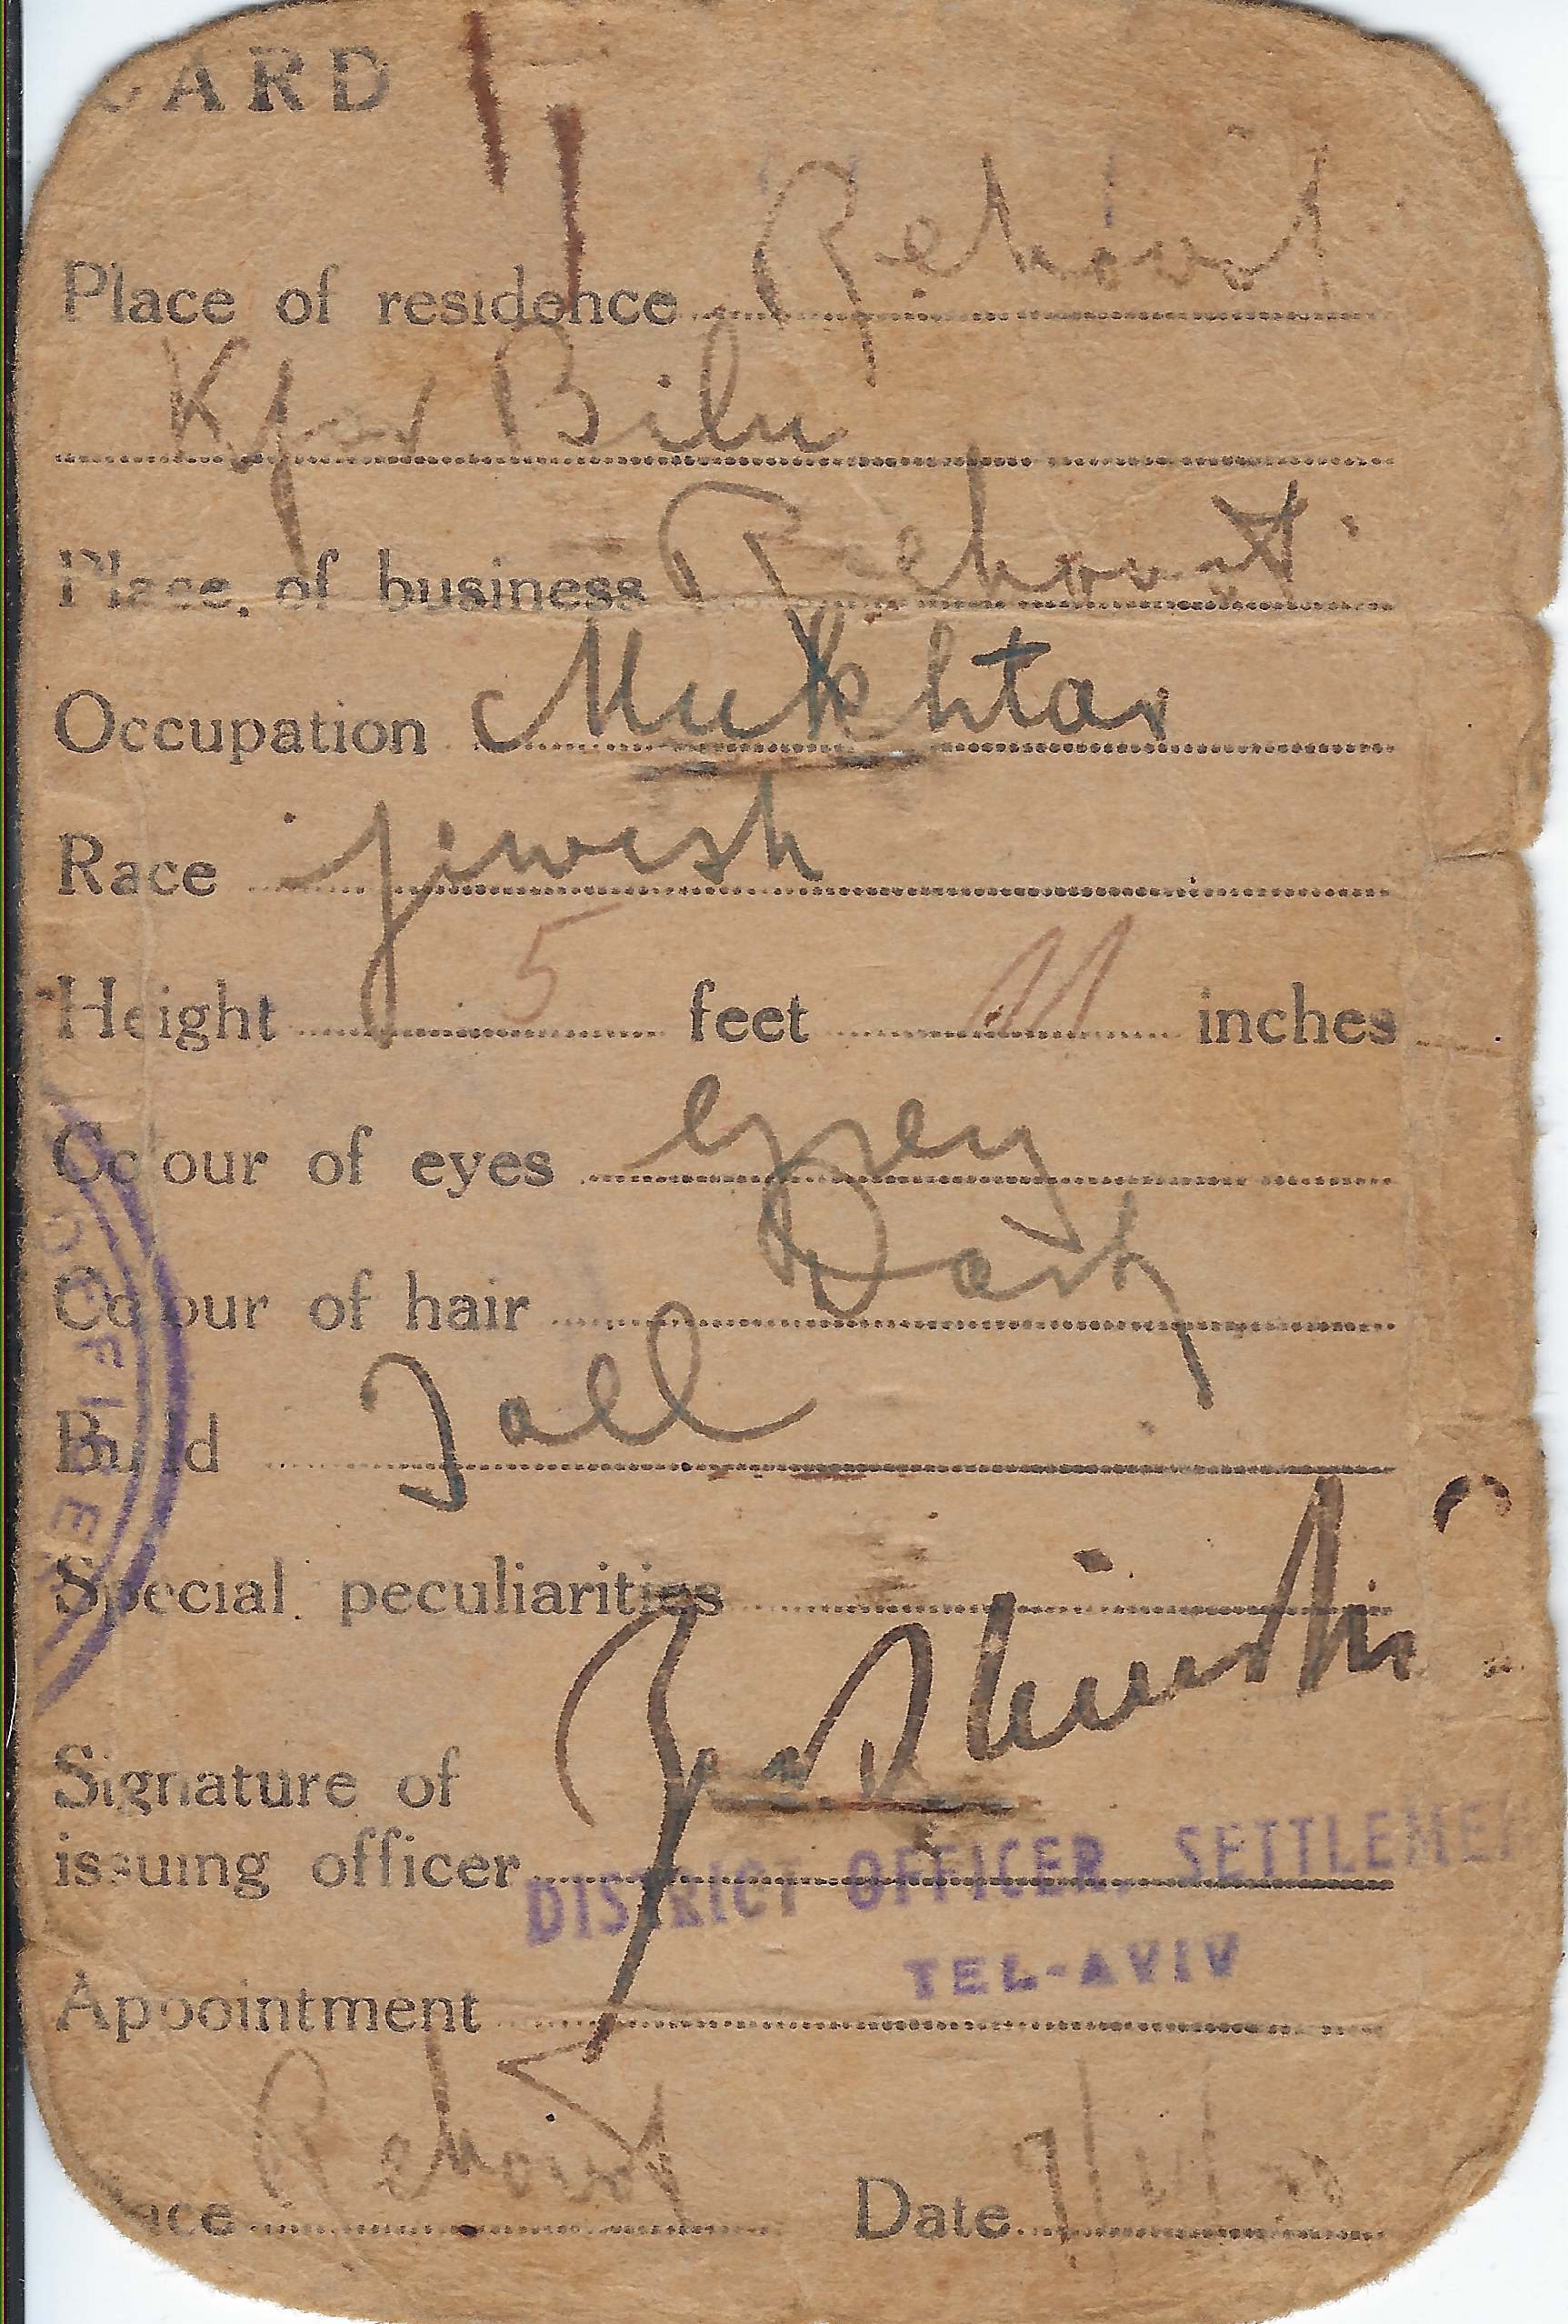 CARD
Place of residence Rehovot
Kfar Bilu
Place of business Rehovot
Occupation Mukhtar
Race Jewish
Height 5 feet 11 inches
Colour of eyes Grey
Colour of hair Dark
Build Tall
Special peculiarities
Signature of
issuing officer
DISTRICT OFFICER, SETTLEMEN
TEL-AVIV
Appointment
Place Rehovot Date
OFFICER